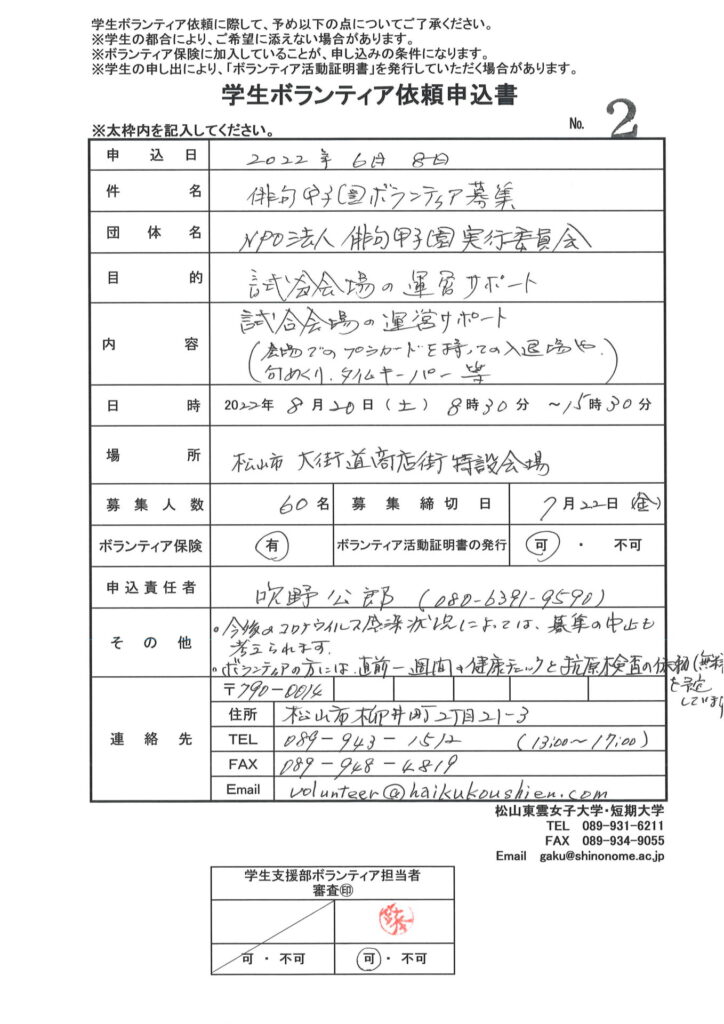 学生ボランティア依頼に際して、予め以下の点についてご了承ください。
※学生の都合により、ご希望に添えない場合があります。
※ボランティア保険に加入していることが、申し込みの条件になります。
※学生の申し出により、「ボランティア活動証明書」を発行していただく場合があります。
学生ボランティア依頼申込書
※太枠内を記入してください。 No. 2
申込日 2022年6月8日
件名 俳句甲子園ボランティア募集
団体名 NPO法人 俳句甲子園実行委員会
目的 試合会場の運営サポート
内容 試合会場の運営サポート
(会場でのプラカードを持っての入退場や、
句めくり、タイムキーパー等)
日時 2022年8月20日(土)8時30分 ~15時30分
場所 松山市 大街道商店街 特設会場
募集人数 60名 募集締切日 7月22日(金)
ボランティア保険 有 ボランティア活動証明書の発行 可・不可
申込責任者 吹野公郎 (080-6391-9590)
その他 ・今後のコロナウイルス感染状況によっては、募集の中止も
考えられます。
・ボランティアの方には、直前一週間の健康チェックと抗原検査の依頼(無料)
を予定
しています
連絡先 〒790-0014
住所 松山市柳井町2丁目21-3
TEL 089-943-1512 (13:00~17:00)
FAX 089-948-4819
Email volunteer@haikukoushien.com
松山東雲女子大学・短期大学
TEL 089-931-6211
FAX 089-934-9055
Email gaku@shinonome.ac.jp
学生支援部ボランティア担当者
審査㊞
可・不可 可・不可